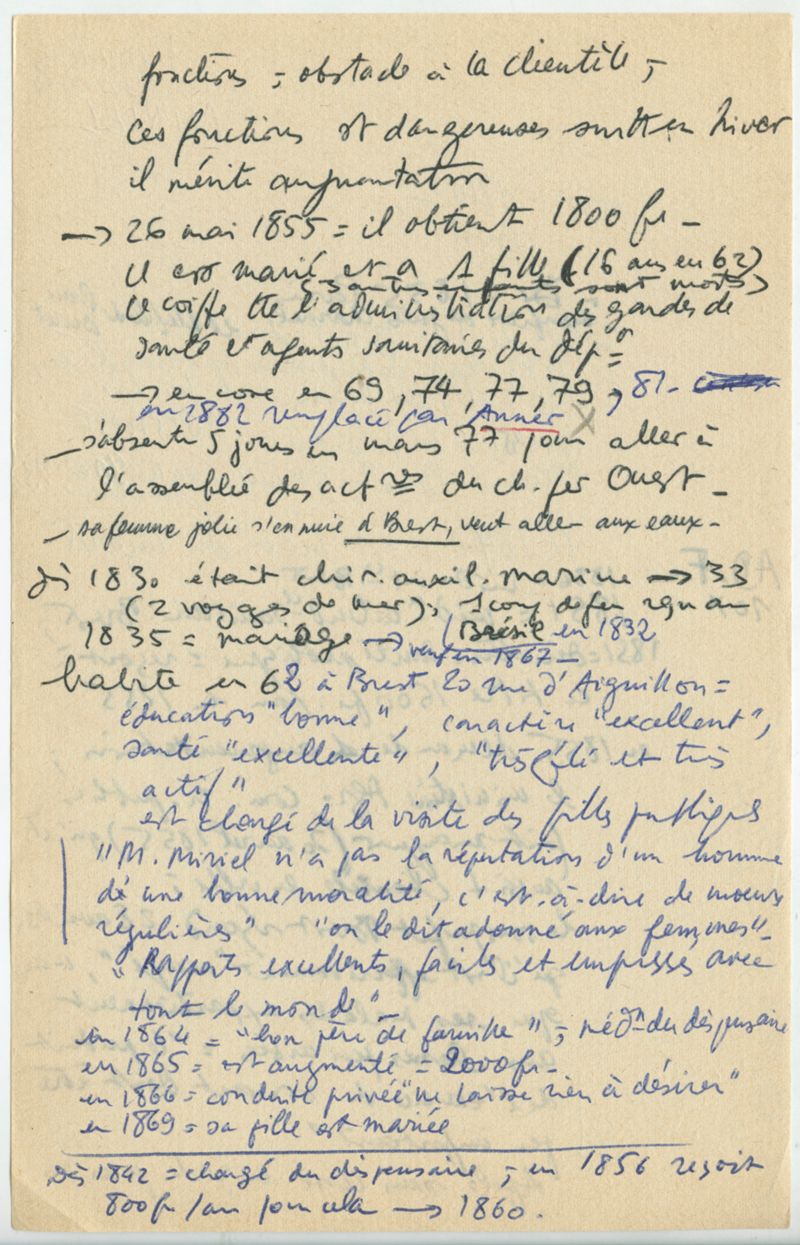 fonctions = obstacle à la clientèle ;
ces fonctions st dangereuses surtt en hiver
il mérite augmentation
→ 26 mai 1855 = il obtient 1800 fr -
il est marié et a 1 fille (16 ans en 62)
(3 autres enfants sont morts)
il coiffe tte l'administration des gardes de
santé et agents sanitaires du dépt
→ encore en 69, 74, 77, 79, 81 -
en 1882 remplacé par Anner X
- s'absente 5 jours en mars 77 pour aller à
l'assemblée des actres du ch. fer Ouest -
- sa femme jolie s'ennuie à Brest, veut aller aux eaux -
dès 1830 était chir. auxil. marine → 33
(2 voyages de mer), 1 coup de feu reçu au
1835 = mariage → (Brésil en 1832
veuf en 1867 -
habite en 62 à Brest 20 rue d'Aiguillon =
éducation "bonne", caractère "excellent",
santé "excellente", "très zélé et très
actif"
est chargé de la visite des filles publiques
"M. Miriel n'a pas la réputation d'un homme
de une bonne moralité, c'est-à-dire de moeurs
régulières" "on le dit adonné aux femmes" -
"Rapports excellents, faciles et empressés avec
tout le monde" -
en 1864 = "bon père de famille" ; médn du dispensaire
en 1865 = est augmenté = 2000 fr -
en 1866 = conduite privée "ne laisse rien à désirer"
en 1869 = sa fille est mariée
Dès 1842 = chargé du dispensaire ; en 1856 reçoit
800 fr/an pour cela → 1860.